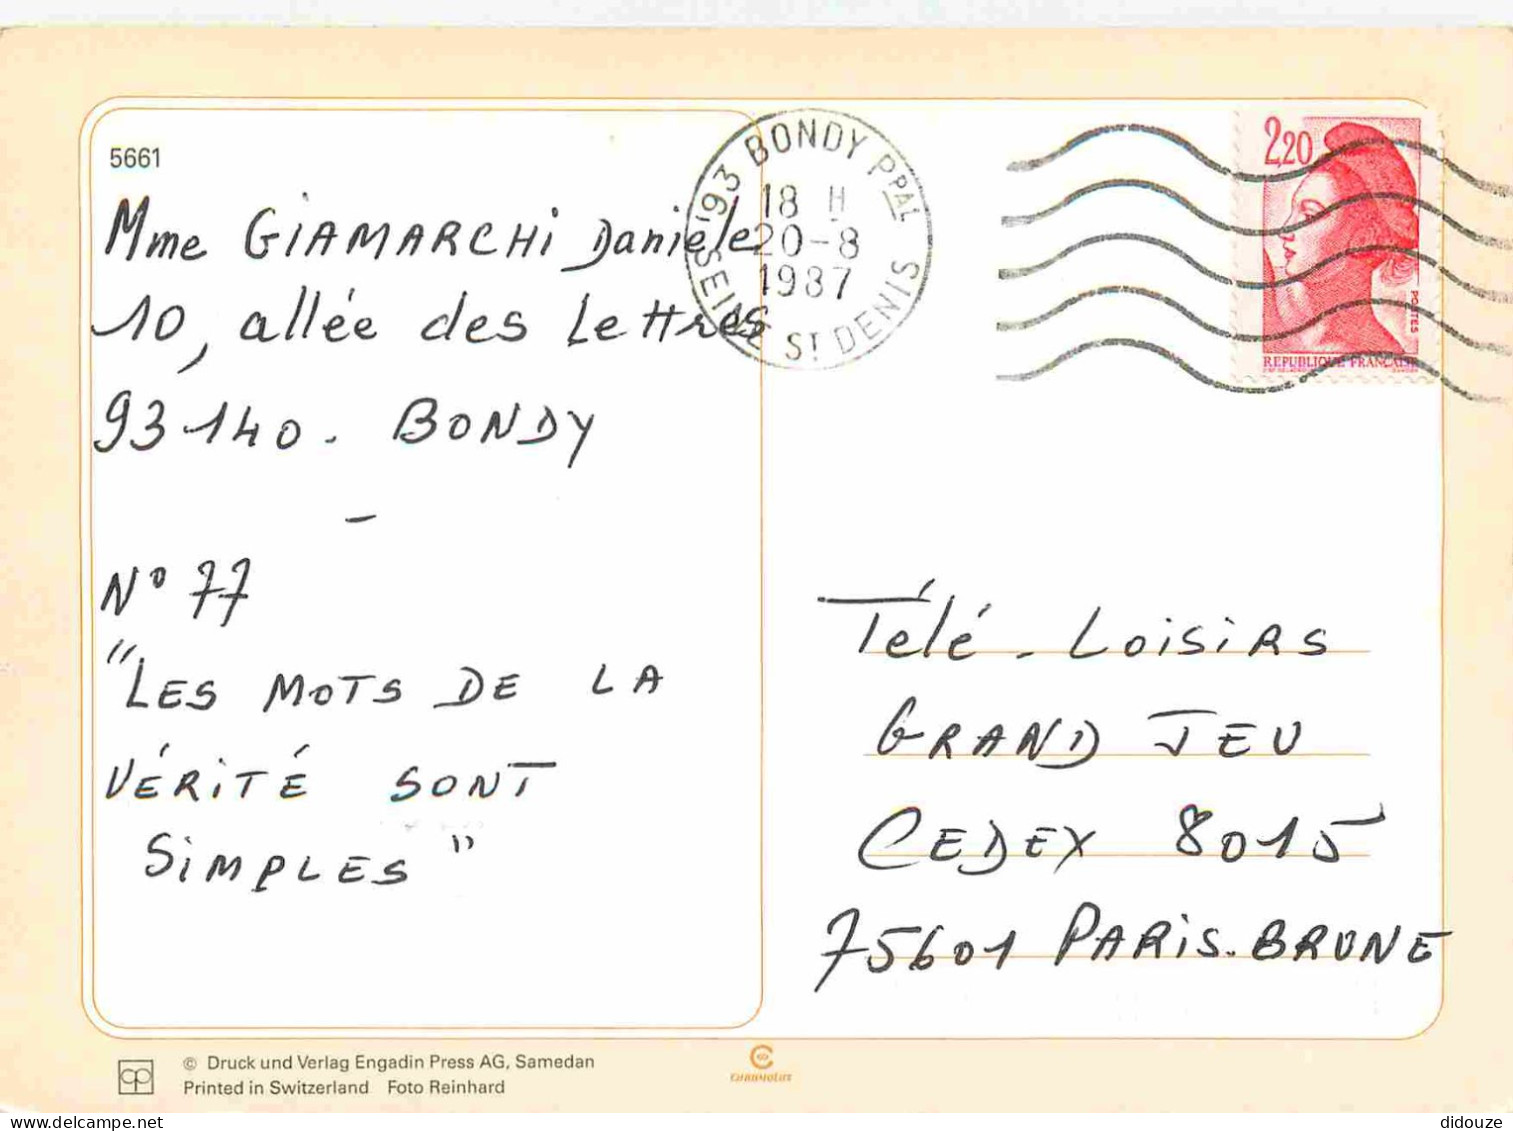 5661
Mme GIAMARCHI Danièle
10, allée des Lettres
93140. BONDY
-
N° 77
"LES MOTS DE LA
VÉRITÉ SONT
SIMPLES"
93 BONDY PPAL
18 H
20-8
1987
SEINE ST DENIS
2,20
POSTES
REPUBLIQUE FRANÇAISE
Télé-LOISIRS
GRAND JEU
CEDEX 8015
75601 PARIS-BRUNE
© Druck und Verlag Engadin Press AG, Samedan
Printed in Switzerland Foto Reinhard
didouze